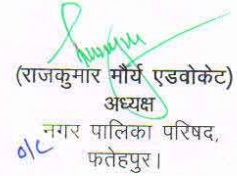 (राजकुमार मौर्य एडवोकेट)
अध्यक्ष
नगर पालिका परिषद,
o/c
फतेहपुर।